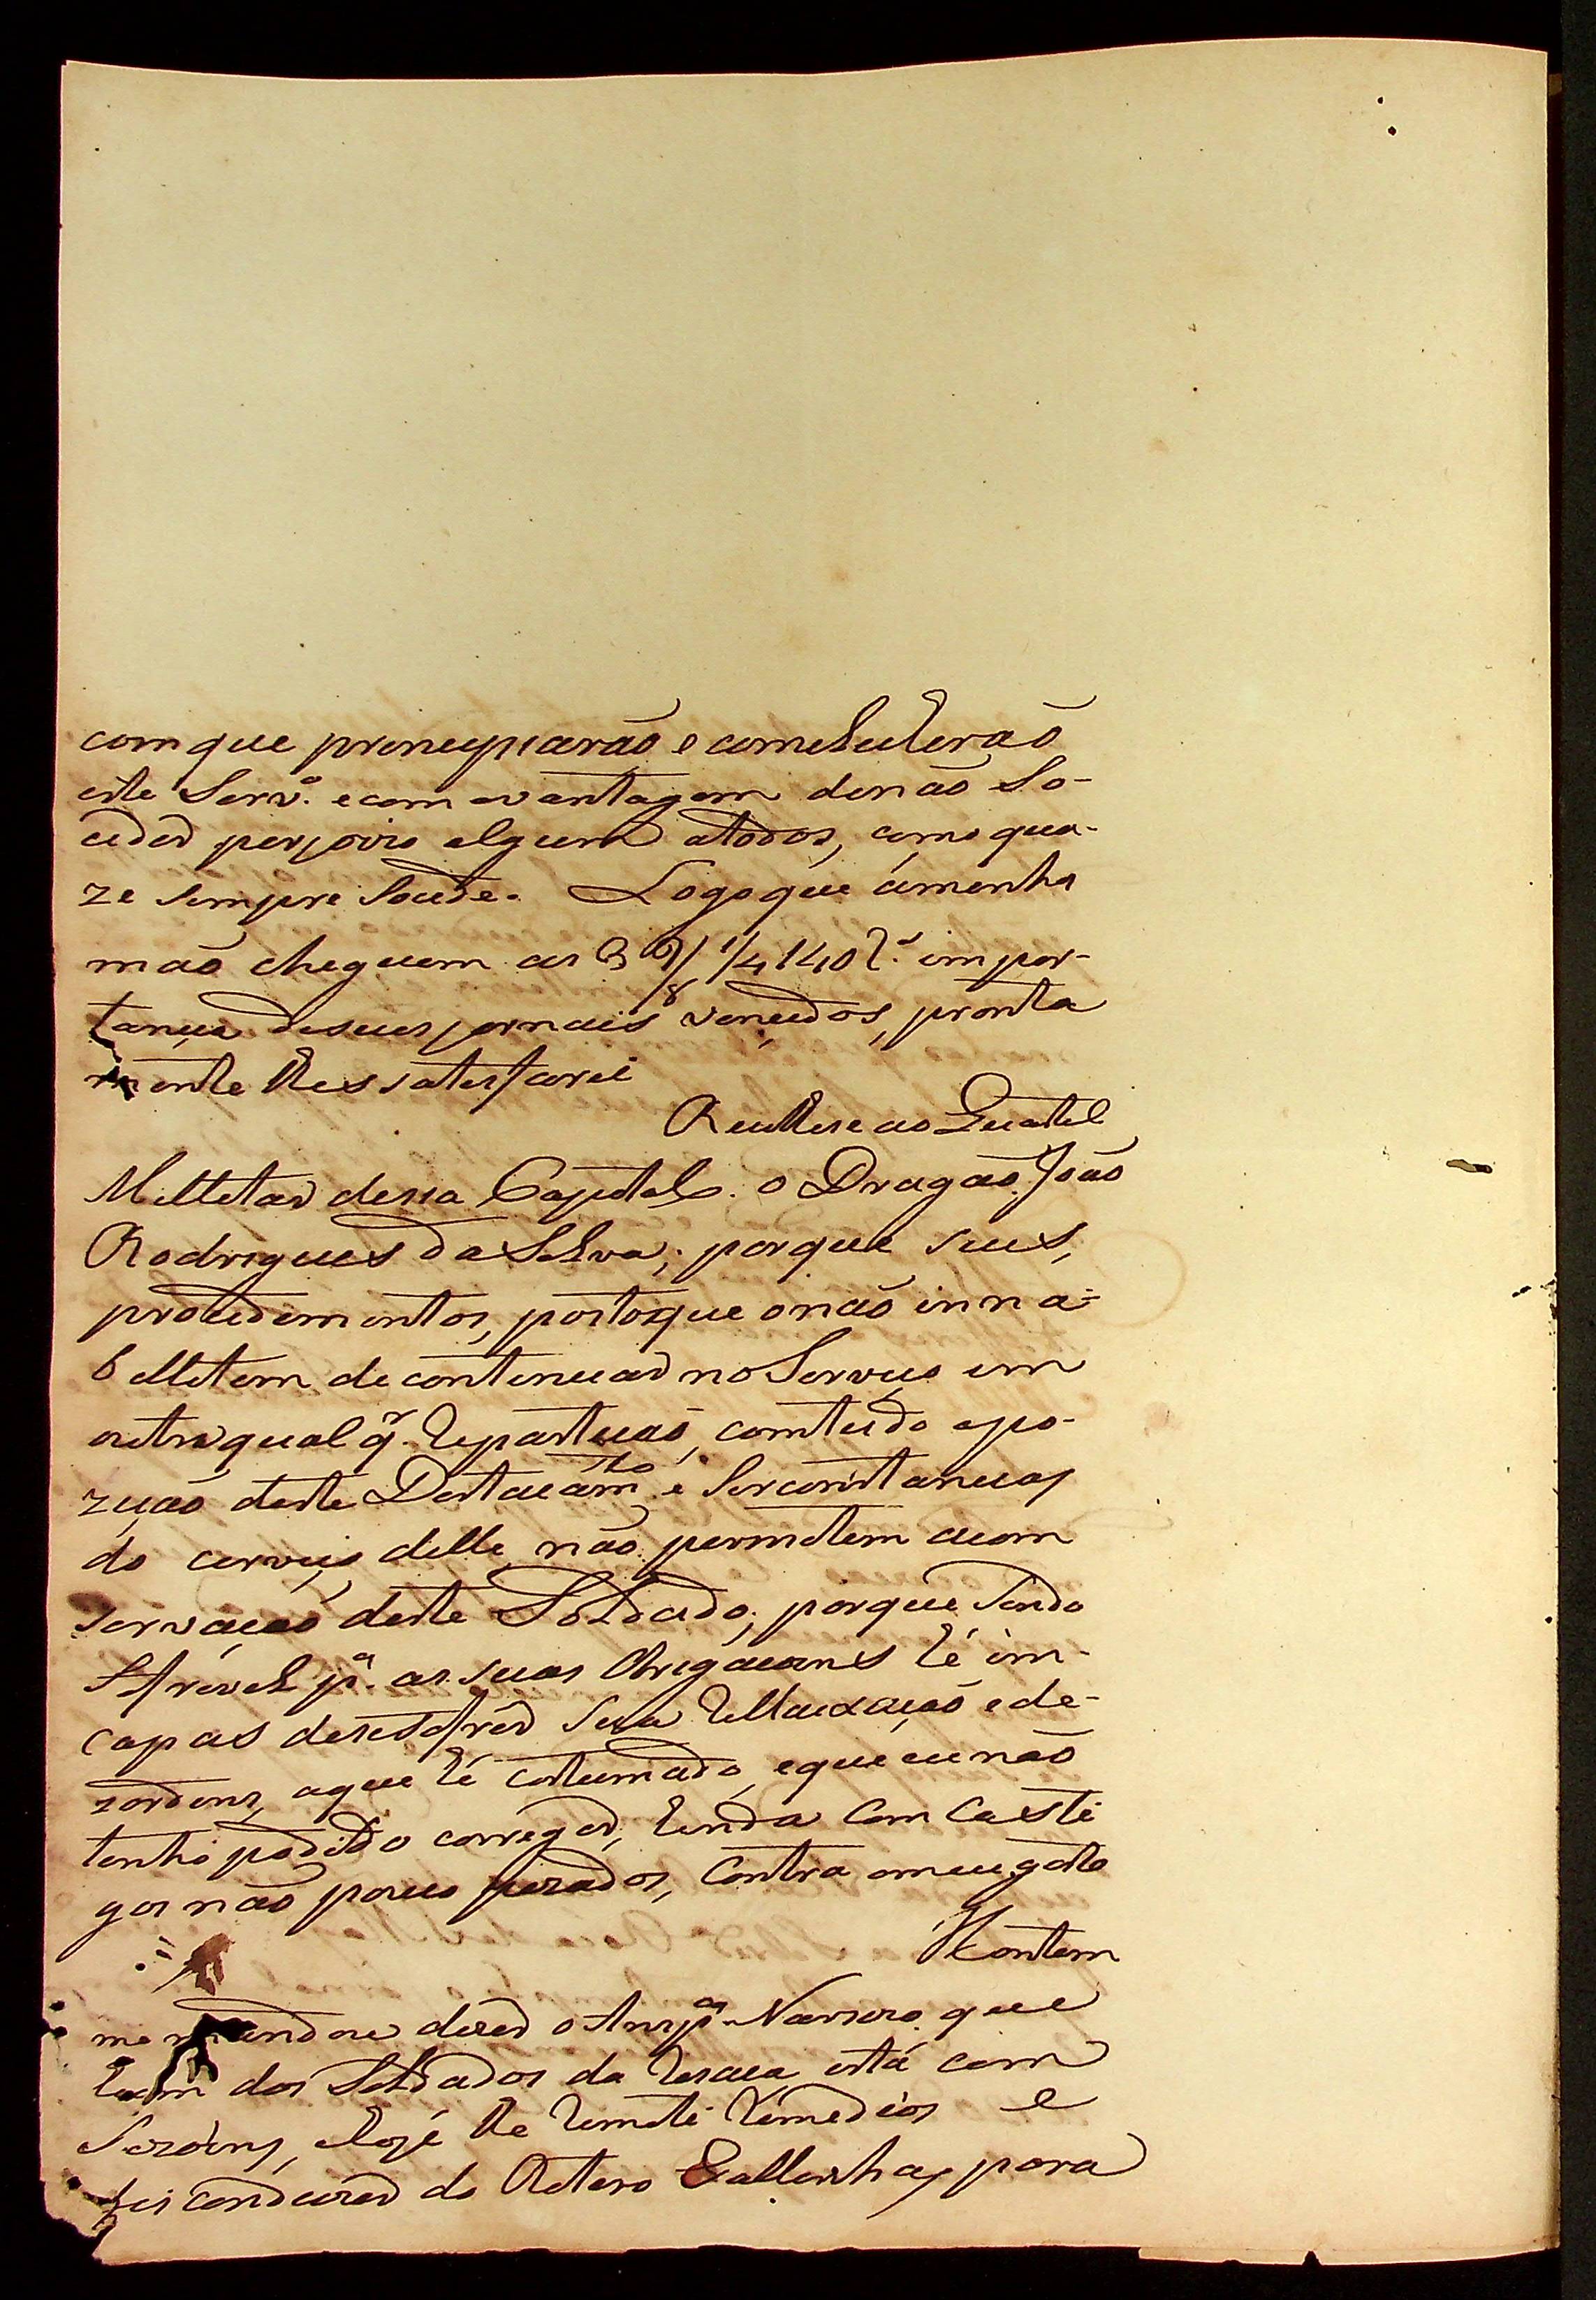 com que principiarão e comcluhirão
este Serv.º e com avantagem de não So-
ceder perjoizo algum atodos, como qua-
ze sempre Socede. Logo que ámenha
mão cheguem as 3 8/8 1/4 140 r.s impor-
tancia deseus jornais vencidos, pronta
mente lhes satesfarei
Recolhese ao Quartel
Millitar dessa Capetal o Dragão João
Rodrigues da Selva; porque seus,
procedementos, posto que o não inna-
bellitem de continuar no Serviço em
outra qual q.r repartição, comtudo apo-
zição deste Destacám.to e Serconstancias
do cerviço delle não permetem acom
servação deste Soldado; porque sendo
ffrivel p.ª as suas Obrigacoins hé im-
capas deresestir Sua rellaxação e de-
zordens, aque hé costumado, eque eu não
tenho podido correger, hinda Com Caste
gos não pouco pezados, Contra omeu gosto
Hontem
me mandou dezer o Ansp.ª Navarro que
hum dos Soldados da resaca está com
Sezoins, e hojé lhe remeti remedios e
fis conduzir do Retero Gallinhas para